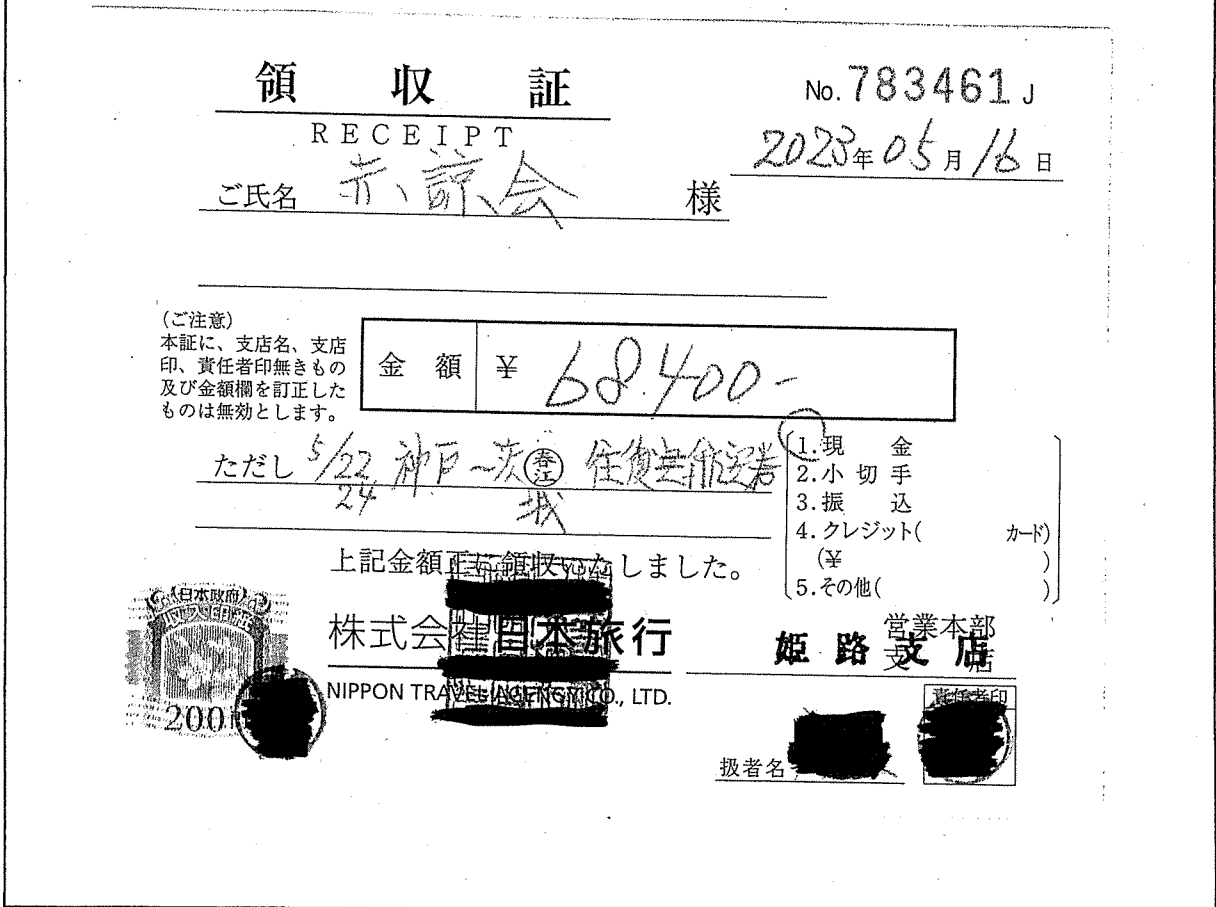 領収証
No. 783461 J
RECEIPT
2023年05月16日
ご氏名 赤諒会 様
(ご注意)
本証に、支店名、支店
印、責任者印無きもの
及び金額欄を訂正した
ものは無効とします。
金額 ¥ 68,400-
ただし 5/22 神戸〜茨 春江
24 城
1.現金
2.小切手
3.振込
4.クレジット( カード)
(¥ )
5.その他( )
上記金額正に領収いたしました。
日本政府
200
株式会社日本旅行
NIPPON TRAVEL AGENCY CO., LTD.
営業本部
姫路支店
支店
責任者印
扱者名